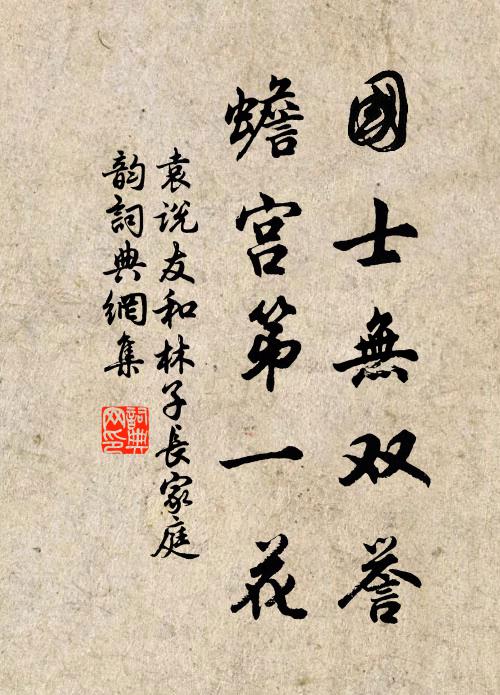 國士無双誉
蟾宫第一花
袁说友和林子長家庭
韵詞典網集
詞典
网印